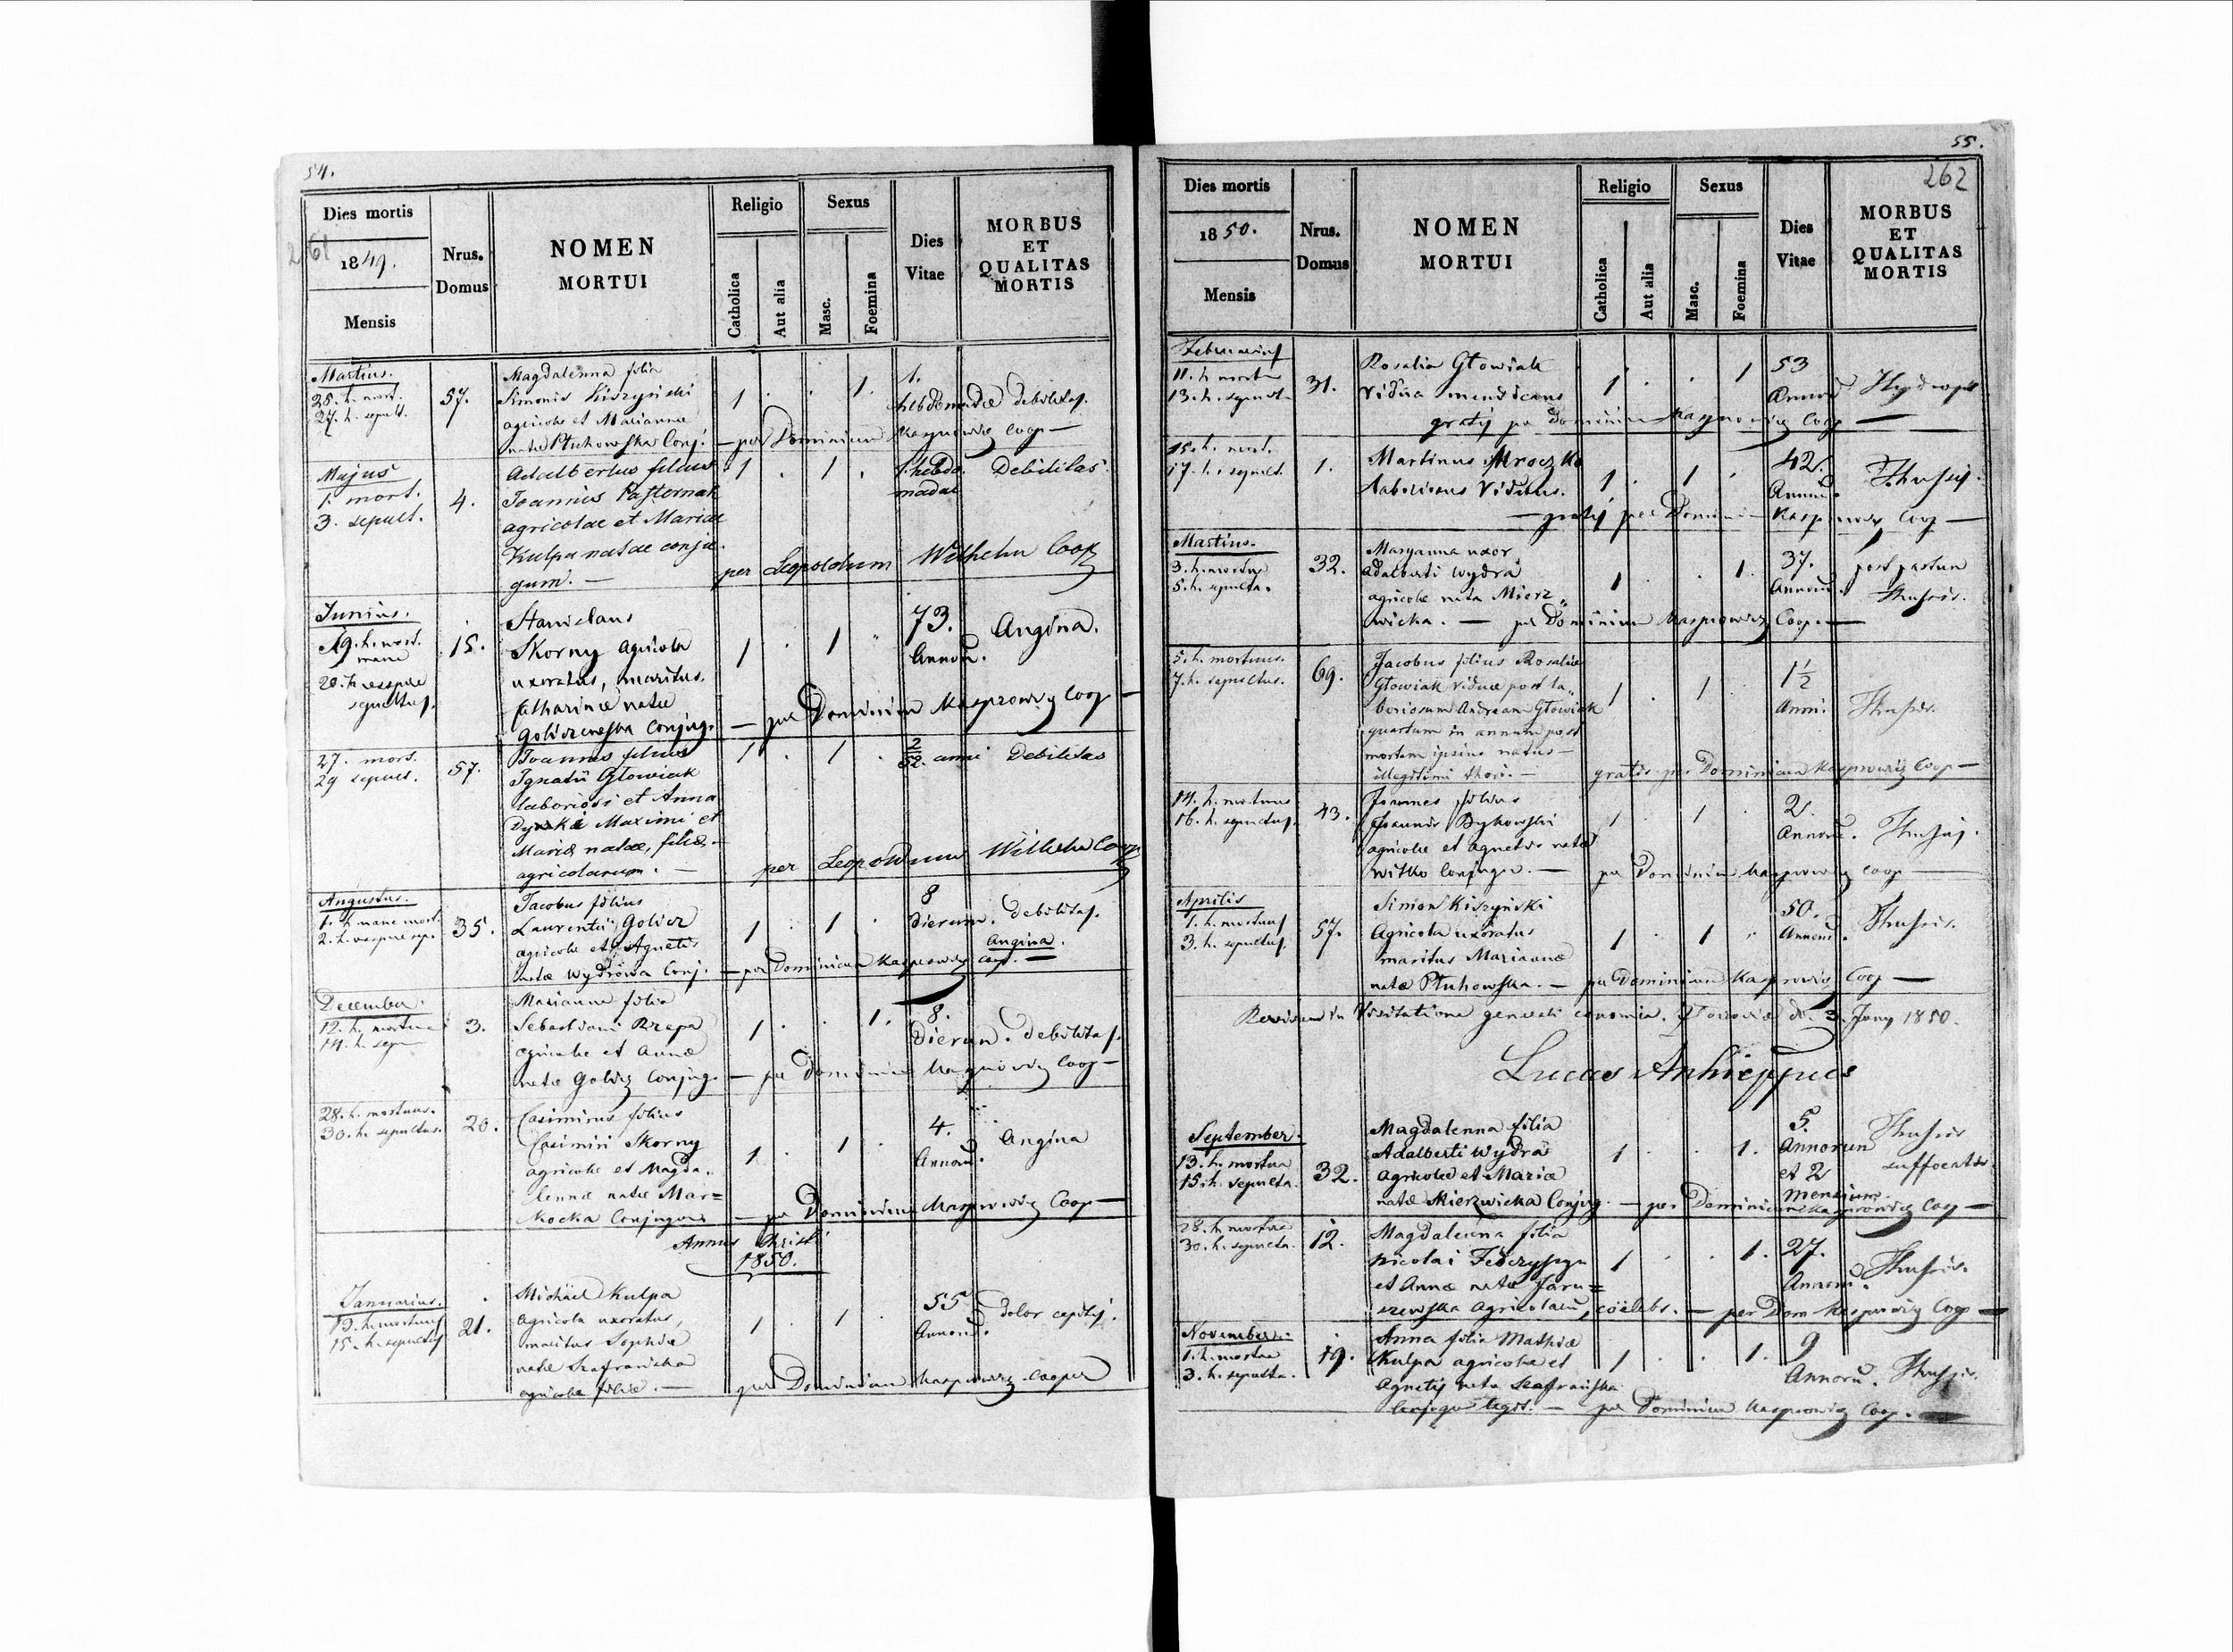 54.
261
Dies mortis
1849.
Mensis
Nrus.
Domus
NOMEN
MORTUI
Religio
Catholica
Aut alia
Sexus
Masc.
Foemina
Dies
Vitae
MORBUS
ET
QUALITAS
MORTIS
Martius.
25. h. mort.
27. h. sepult.
57.
Magdalenna filia
Simonis Kiszyński
agricolae et Marianna
natae Ptuhowska Conj. — per Dominicum Kasprowicz Coop —
1 . . 1.
1.
hebdomadae debilitas.
Majus
1. mort.
3. sepult.
4.
Adalbertus filius
Joannis Pasternak
agricolae et Mariae
Kulpa natae conju-
gum. —
1 . 1 .
1. hebdo
madae
Debilitas.
per Leopoldum Wilhelm Coop
Junius.
19. h. mort.
mane
20. h. vespere
sepultus.
15.
Stanislaus
Skorny agricola
uxoratus, maritus
Catharinae natae
Goliszewska Conjug. — per Dominicum Kasprowicz Coop —
1 . 1 "
73.
Annorū.
Angina.
27. mort.
29 sepult.
57.
Joannes filius
Ignatii Głowiak
laboriosi et Anna
Maximi et
Mariae natae, filiae
agricolarum. —
1 . 1 .
2/52. anni
Debilitas
per Leopoldum Wilhelm Coop
Augustus.
1. h. mane mort.
2. h. vespere sep.
35.
Jacobus filius
Laurentii Golisz
agricolae et Agnetis
natae Wydrowa Conj. — per Dominicum Kasprowicz Coop. —
1 . 1 .
8
Dierum.
debilitas.
Angina.
December.
12. h. mortua
14. h. sep
3.
Marianna filia
Sebastiani Rzepa
agricolae et Annae
natae Golisz Conjug. — per Dominicum Kasprowicz Coop —
1 . . 1.
8.
Dierum. debilitas.
28. h. mortuus.
30. h. sepultus.
20.
Casimirus filius
Casimiri Skorny
agricolae et Magda-
lennae natae Mar=
Kocka Conjugum — per Dominicum Kasprowicz Coop —
1 . 1 .
4.
Annorū.
Angina
Annus Christi
1850.
Januarius.
13. h. mortuus
15. h. sepultus
21.
Michael Kulpa
agricola uxoratus,
maritus Sophiae
natae Szafrańska
agricolae filiae. — per Dominicum Kasprowicz Cooper
1 . 1 .
55
Annorū.
dolor capitis.
55.
262
Dies mortis
1850.
Mensis
Nrus.
Domus
NOMEN
MORTUI
Religio
Catholica
Aut alia
Sexus
Masc.
Foemina
Dies
Vitae
MORBUS
ET
QUALITAS
MORTIS
Februarius
11. h. mortua
13. h. sepult
31.
Rosalia Głowiak
Vidua mendicans
gratis per Dominicum Kasprowicz Coop —
1 . . 1
53
Annorū
Hydrops
15. h. mort.
17. h. sepult.
1.
Martinus Mroczko
laboriosus Viduus.
— gratis per Dominicum Kasprowicz Coop —
1 . 1 .
42.
Annorū.
Thusis.
Martius.
3. h. mortua
5. h. sepulta.
32.
Maryanna uxor
Adalberti Wydra
agricolae nata Mierz„
wicka. — per Dominicum Kasprowicz Coop. —
1 . . 1.
37.
Annorū.
post partum
Thusis.
5. h. mortuus.
7. h. sepultus.
69.
Jacobus filius Rosaliae
Głowiak viduae post la„
boriosum Andream Głowiak
quartum in annum post
mortem ipsius natus —
illegitimi thori. — gratis per Dominicum Kasprowicz Coop —
1 . 1 .
1½
Anni.
Thusis.
14. h. mortuus
16. h. sepultus.
43.
Joannes filius
Joannis Bykowski
agricolae et Agnetis natae
Witko Conjugum. — per Dominicum Kasprowicz Coop —
1 . 1 .
2.
Annorū.
Thusis.
Aprilis
1. h. mortuus
3. h. sepultus.
57.
Simon Kiszyński
Agricola uxoratus
maritus Mariannae
natae Ptuhowska. — per Dominicum Kasprowicz Coop —
1 . 1 "
50.
Annorū.
Thusis.
Revisum in Visitatione generali canonica. d. 3. Juny 1850.
Lucas Archieppus
September.
13. h. mortua
15. h. sepulta.
32.
Magdalenna filia
Adalberti Wydra
Agricolae et Mariae
natae Mierzwicka Conjug. — per Dominicum Kasprowicz Coop —
1 . . 1.
5.
Annorum
et 2
Mensium.
Thusis
suffocatus.
28. h. mortua
30. h. sepulta.
12.
Magdalenna filia
Nicolai
et Annae natae Jaru=
szewska Agricolarū, coelebs. — per Dom Kasprowicz Coop —
1 . . 1.
27.
Annorū.
Thusis.
November.
1. h. mortua
3. h. sepulta.
19.
Anna filia Mathiae
Kulpa agricolae et
Agnetis nata Szafrańska
Conjugum legit. — per Dominicum Kasprowicz Coop.
1 . . 1.
9
Annorū.
Thusis.